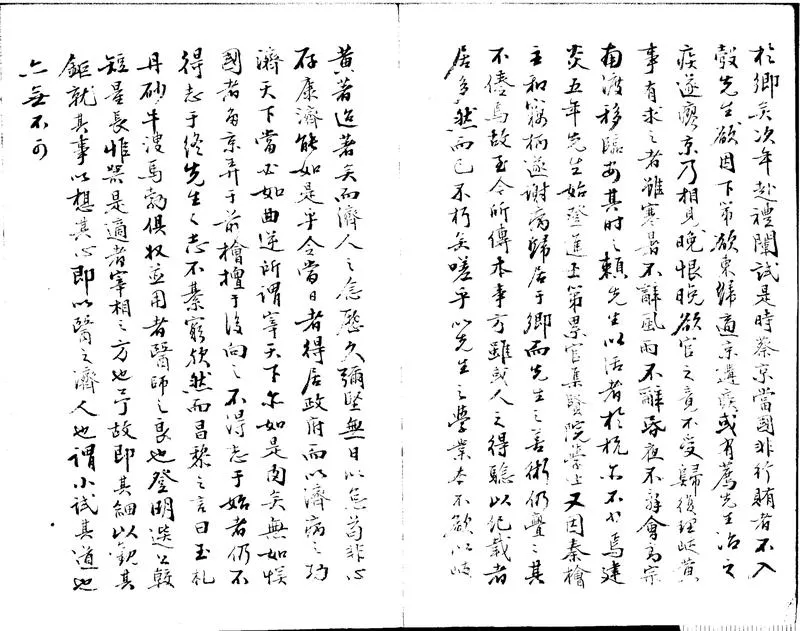 於鄉矣次年赴禮闈試是時蔡京當國非行賄者不入
彀先生欲因下第欲東歸適京遘疾或有薦先生治之
疾遂瘳京乃相見晚恨晚欲官之竟不受歸復理岐黃
事有求之者雖寒暑不辭風雨不辭昏夜不辭會高宗
南渡移臨安其時之賴先生以活者於杭尔不少焉建
炎五年先生始登進士第累官集賢院學士又因秦檜
主和竊柄遂謝病歸居于鄉而先生之善術仍疊之其
不倦焉故至今所傳本事方雖或人之得聽以紀載者
居多然而已不朽矣嗟乎以先生之學業本不欲以岐
黃著迄著矣而濟人之念歷久彌堅無日以怠苟非心
存康濟能如是乎令當日者得居政府而以濟病之巧
濟天下當必如曲逆所謂宰天下尔如是肉矣無如悞
國者角京弄于前檜擅于後向之不得志于始者仍不
得志于終先生之志不綦窮欤然而昌黎之言曰玉札
丹砂牛溲馬勃俱收並用者醫師之良也登明選公較
短量長惟器是適者宰相之方也予故即其細以觀其
鉅就其事以想其心即以醫之濟人也謂小試其道也
亦無不可